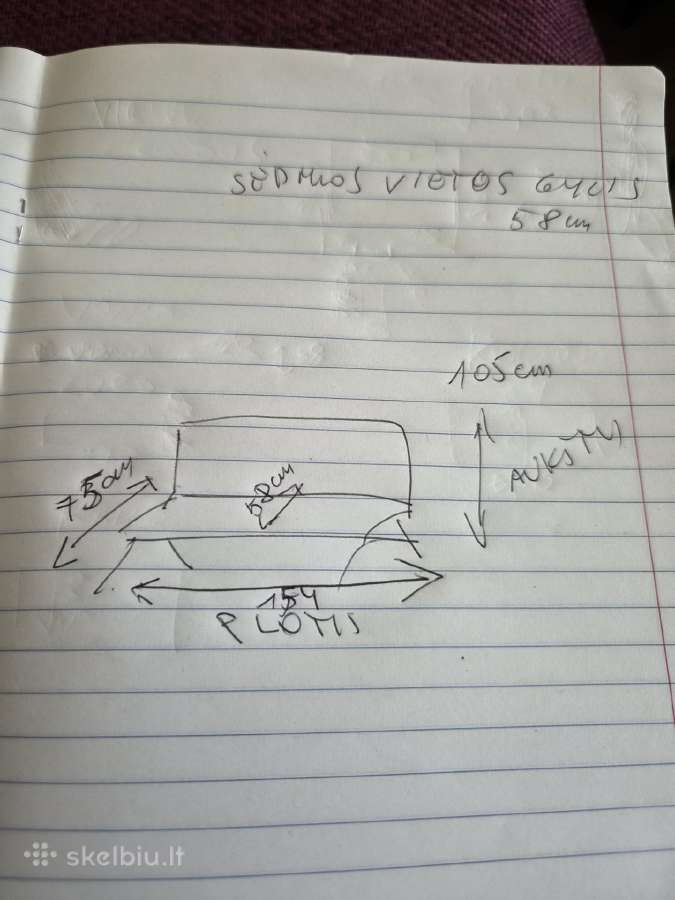 SĖDMOS VIETOS GYLIS
58 cm
105 cm
AUKŠTIS
75 cm
58 cm
154
PLOTIS
skelbiu.lt